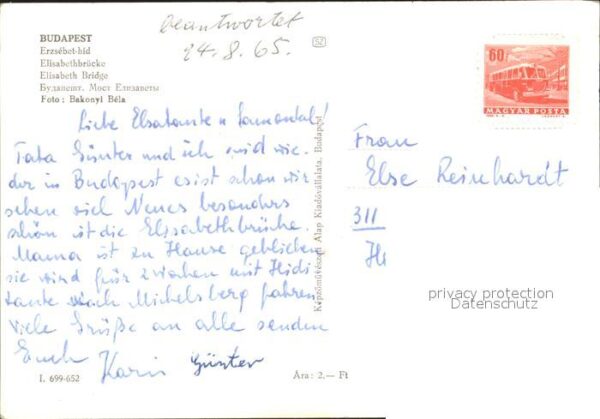 beantwortet
24.8.65.
BUDAPEST
Erzsébet-híd
Elisabethbrücke
Elisabeth Bridge
Будапешт. Мост Елизаветы
Foto: Bakonyi Béla
SZ
60f
MAGYAR POSTA
Liebe Elsatante u
Tata Günter und ich sind wie-
der in Budapest es ist schön wir
sehen viel Neues besonders
schön ist die Elisabethbrücke.
Mama ist zu Hause geblieben
sie wird für 2 Wochen mit Heidi
tante nach Michelsberg fahren
Viele Grüße an alle senden
Euch Karin Günter
Képzőművészeti Alap Kiadóvállalata, Budapest
Frau
Else Reinhardt
311
privacy protection
Datenschutz
I. 699-652
Ára: 2.— Ft